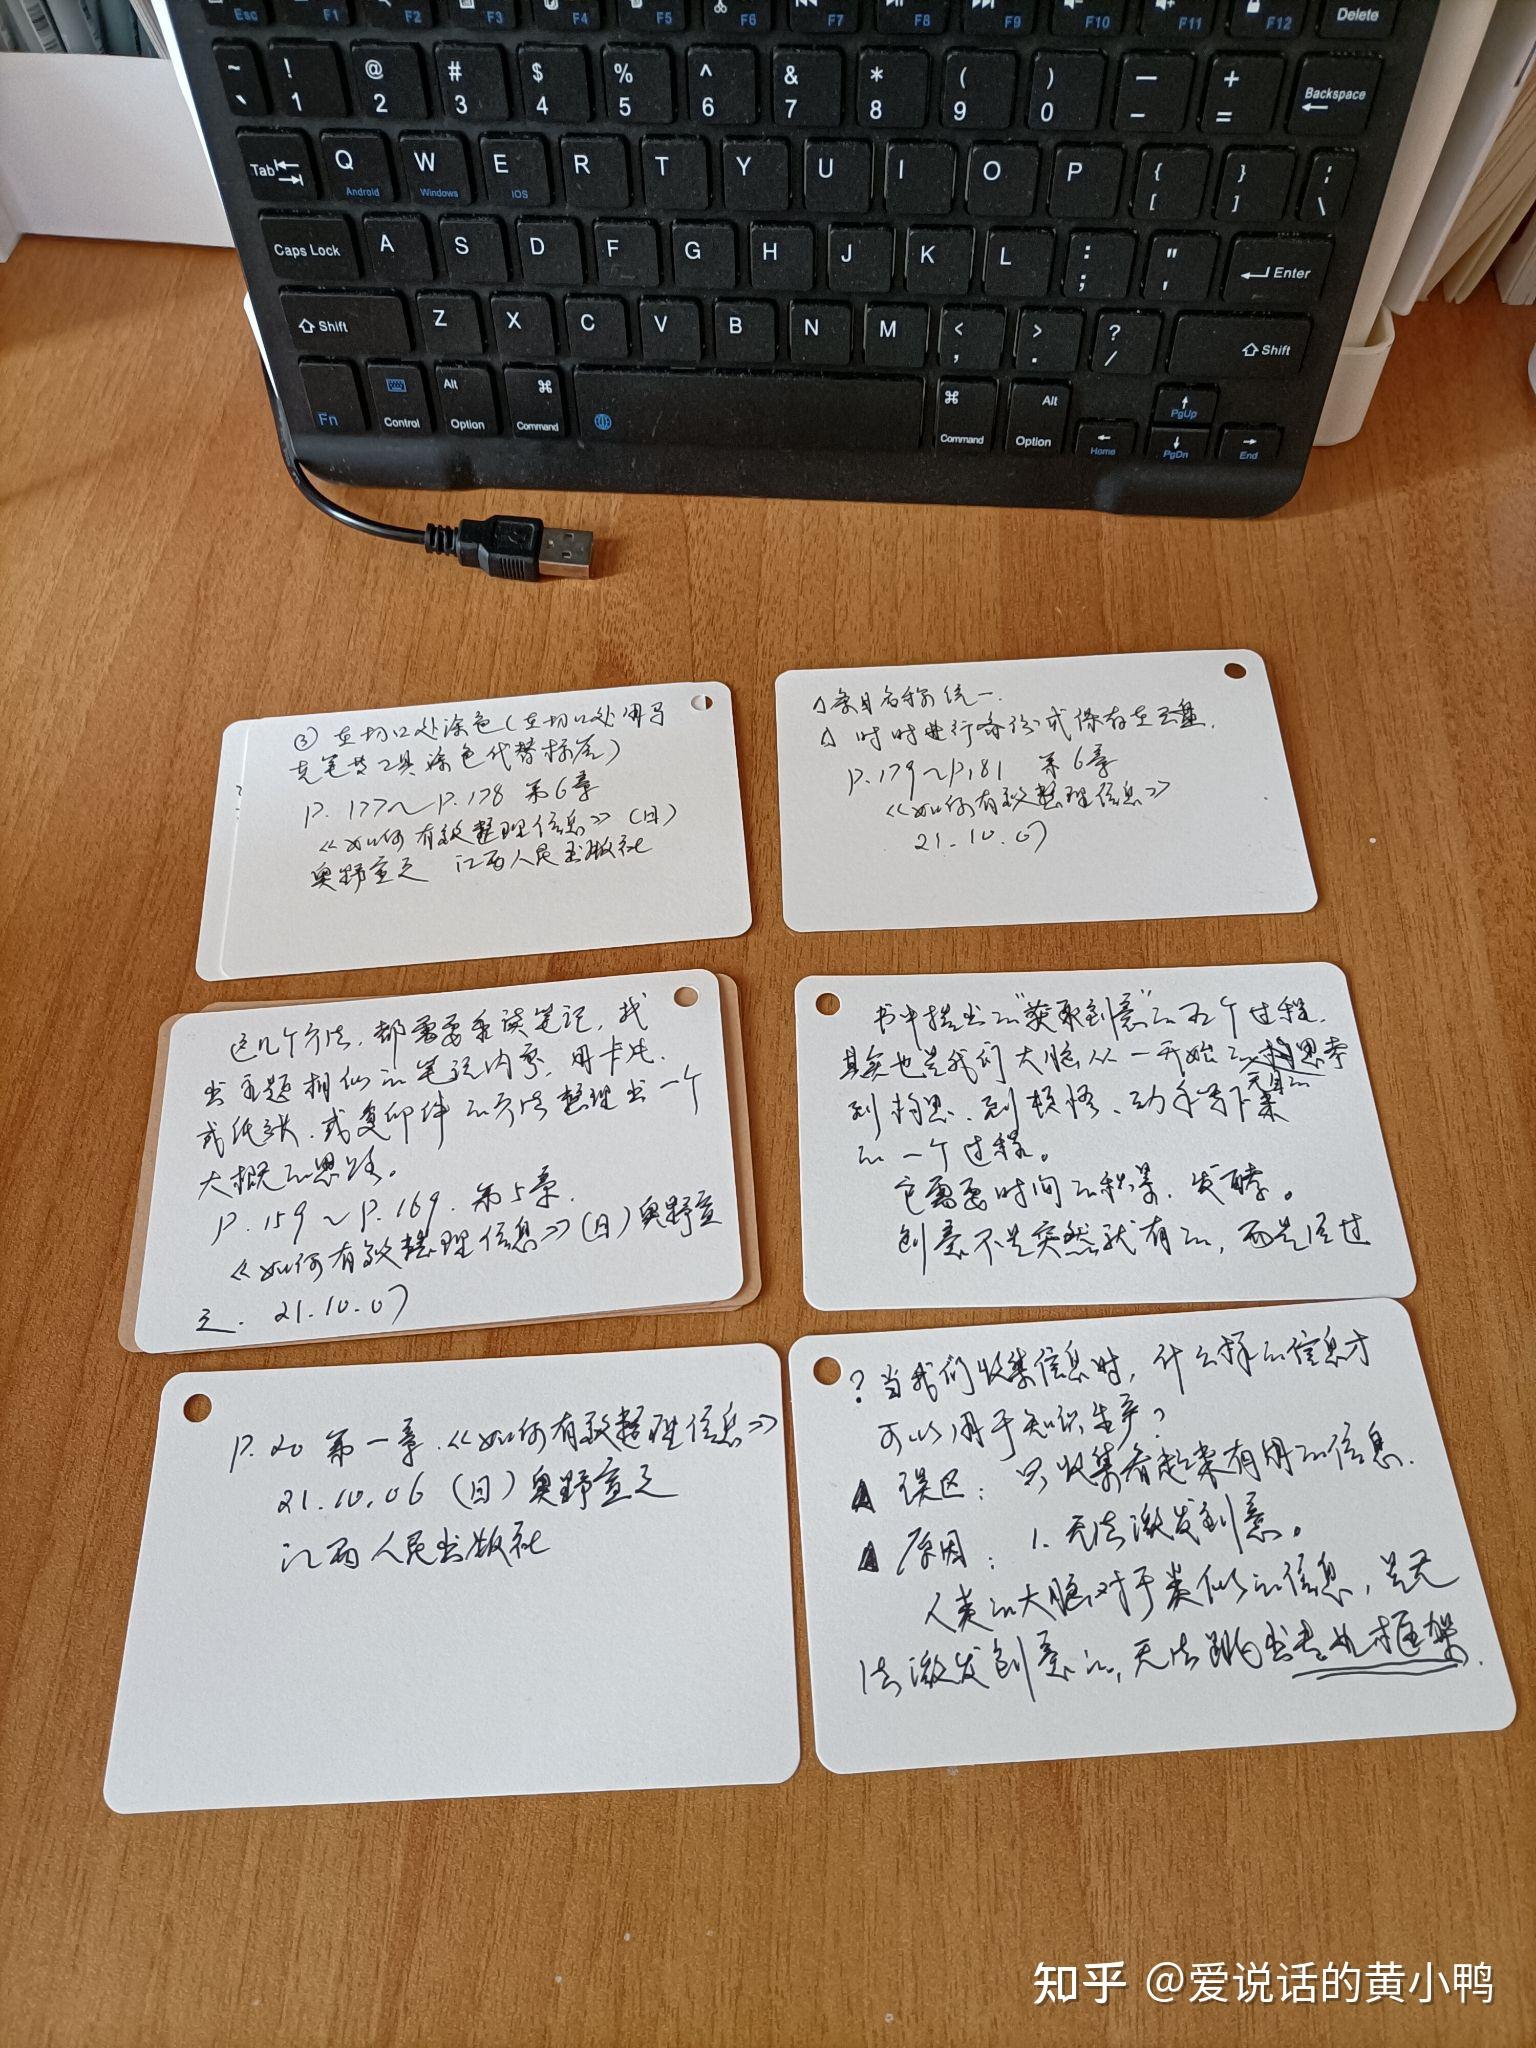 Esc F1 F2 F3 F4 F5 F6 F7 F8 F9 F10 F11 F12 Delete
~ ! @ # $ % ^ & * ( ) — +
` 1 2 3 4 5 6 7 8 9 0 - = Backspace
Tab Q W E R T Y U I O P { } :
Android Windows iOS [ ] \
Caps Lock A S D F G H J K L : " Enter
; '
Shift Z X C V B N M < > ? Shift
, . /
Fn Control Alt Option ⌘ Command ⌘ Command Alt Option Home PgUp PgDn End
③ 在切口处涂色(在切口处用马
克笔等工具涂色代替标签)
P.177~P.178 第6章
《如何有效整理信息》(日)
奥野宣之 江西人民出版社
△条目名称统一.
△ 时时进行备份或保存在云盘.
P.179~P.181 第6章
《如何有效整理信息》
21.10.07
这几个方法,都需要重读笔记,找
出主题相似的笔记内容,用卡片.
或纸张.或复印件的方法整理出一个
大概的思路。
P.159~P.169.第5章.
《如何有效整理信息》(日)奥野宣
之. 21.10.07
书中提出的“获取创意”的五个过程,
其实也是我们大脑从一开始的思考
到构思、到模仿、动手写下来
的一个过程。
它需要时间的积累、发酵。
创意不是突然就有的,而是经过
P.20 第一章.《如何有效整理信息》
21.10.06 (日)奥野宣之
江西人民出版社
?当我们收集信息时,什么样的信息才
可以用于知识生产?
▲ 误区:只收集看起来有用的信息.
▲ 原因:1.无法激发创意。
人类的大脑对于类似的信息,是无
法激发创意的,无法跳出专业框架.
知乎 @爱说话的黄小鸭